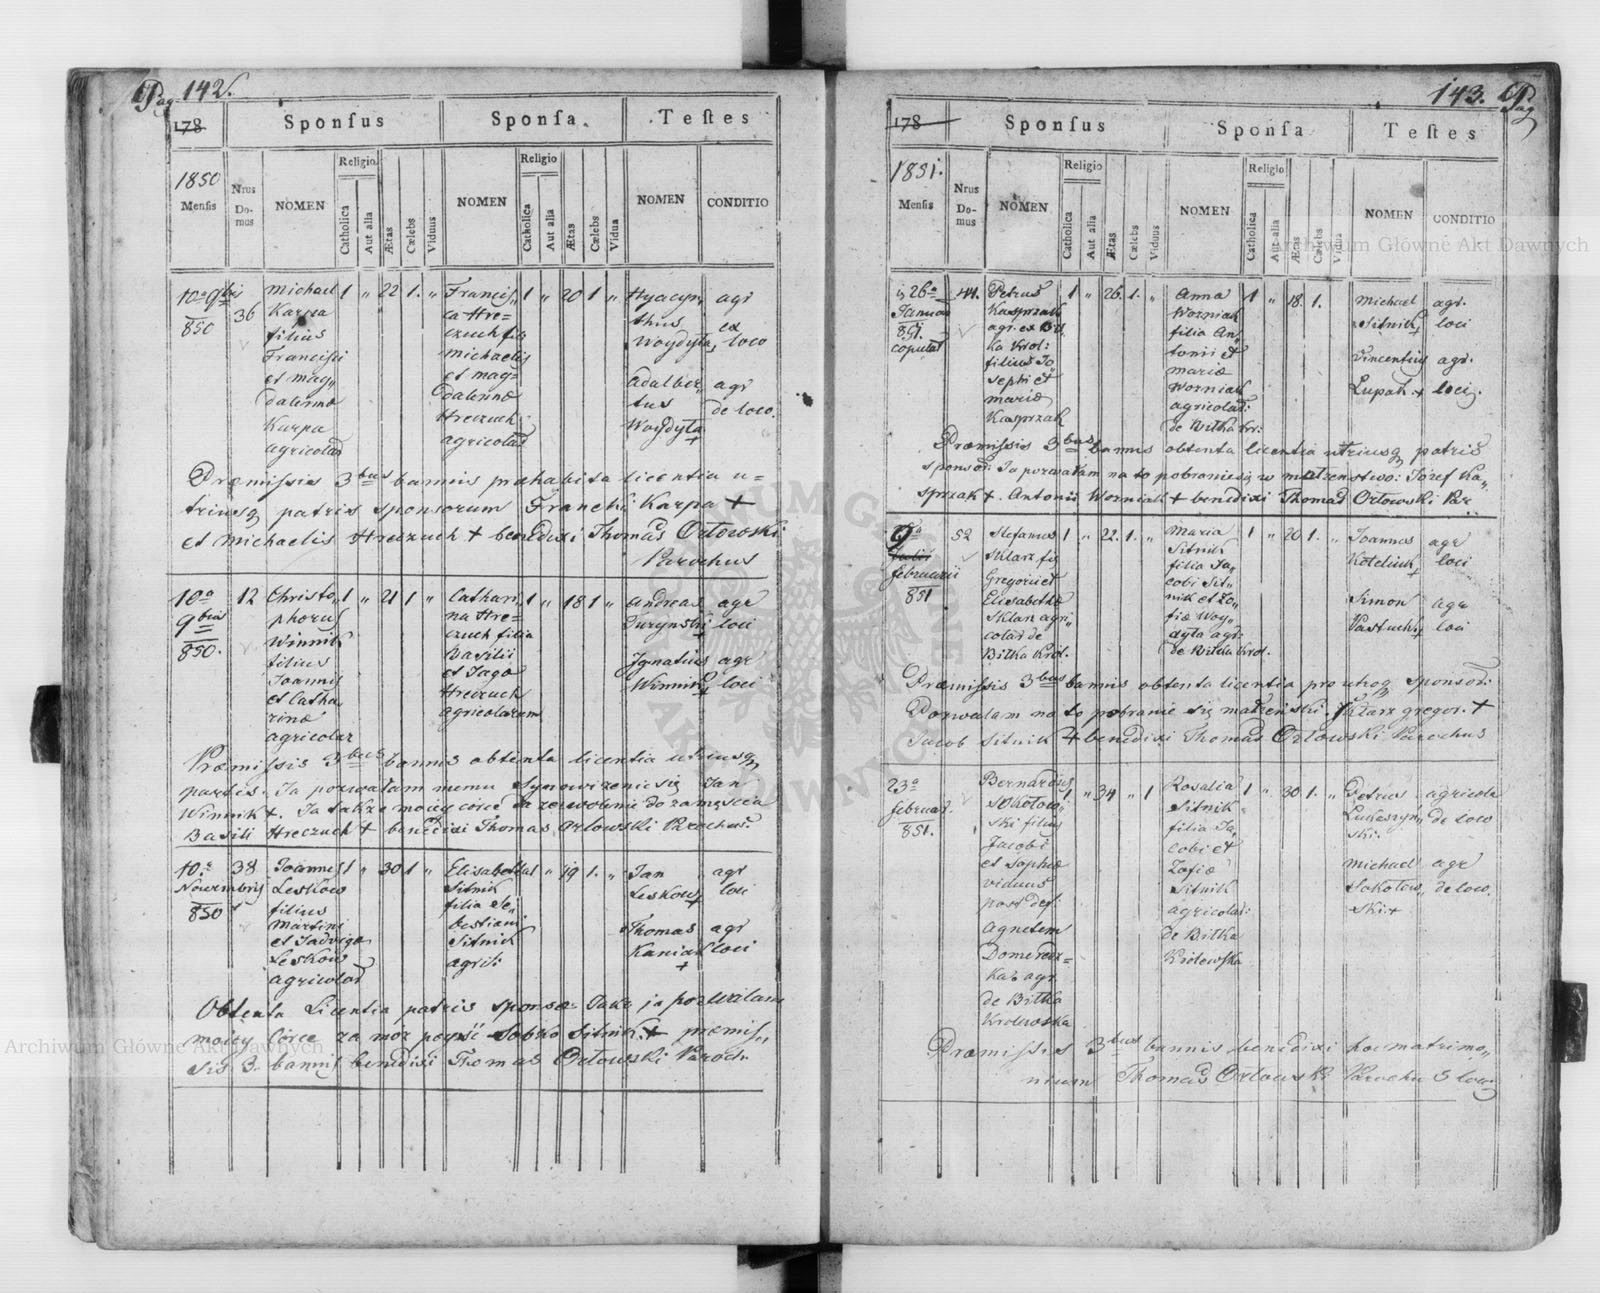 Pag. 142.
178
Sponsus
Sponsa
Testes
1850
Mensis
Nrus
Do-
mus
NOMEN
Religio
Catholica
Aut alia
Ætas
Cælebs
Viduus
NOMEN
Religio
Catholica
Aut alia
Ætas
Cælebs
Vidua
NOMEN
CONDITIO
10a 9bris
850
36
Michael
Karpa
filius
Francisci
et Mag„
dalennæ
Karpa
agricolar
1 „ 22 1. „
Francis„
ca Hre=
czuch fil
Michaelis
et Mag=
dalennæ
Hreczuch
agricolar
1 „ 20 1 „
Hyacyn„
thus
Woydyta
Adalber„
tus
Woydyta
+
agr
ex
loco
agr
de loco.
Præmissis 3bus bannis præhabita licentia u=
triusq patris sponsorum Franchi Karpa +
et Michaelis Hreczuch + benedixi Thomas Orłowski
Parochus
10a
9bris
850.
12
Christo„
phorus
Winnik
filius
Joannis
et Catha
rinæ
agricolar
1 „ 21 1 „
Cathari„
na Hre=
czuch filia
Basilii
et Jaga
Hreczuch
agricolarum
1 „ 18 1 „
Andreas
Turynski
+
Ignatius
Winnik
+
agr
loci
agr
loci
Præmissis 3bus bannis obtenta licentia utriusq
partis. Ja pozwalam memu Synowi żenic się Jan
Winnik +. Ja także moiey corce da zezwolenie do zamęscia
Basili Hreczuch + benedixi Thomas Orłowski Parochus.
10a
Novembris
850
38
Joannes
Leskow
filius
Martini
et Jadviga
Leskow
agricolar
1 „ 30 1 „
Elisabetha
Sitnik
filia Se„
bestiani
Sitnik
agri:
1 „ 19 1. „
Jan
Leskow
+
Thomas
Kaniak
+
agr
loci
agr
loci
Obtenta Licentia patris sponsæ Taka ja pozwalam
moiey corce za moz poysć Sobko Sitnik + præmis„
sis 3. bannis benedixi Thomas Orłowski Paroch.
143. Pag
178
Sponsus
Sponsa
Testes
1851.
Mensis
Nrus
Do-
mus
NOMEN
Religio
Catholica
Aut alia
Ætas
Cælebs
Viduus
NOMEN
Religio
Catholica
Aut alia
Ætas
Cælebs
Vidua
NOMEN
CONDITIO
26a
Januar
851.
copulat
44.
Petrus
Kasprzak
agr. ex Bit
ka Krol:
filius Jo
sephi et
Mariæ
Kasprzak
1 „ 26. 1. „
Anna
Worniak
filia An„
tonii et
Mariæ
Worniak
agricolar:
de Bitka Kr:
1 „ 18. 1.
Michael
Sitnik
+
Vincentius
Lupak. +
agr.
loci
agr.
loci.
Præmissis 3bus bannis obtenta licentia utriusq patris
sponsor: Ja pozwalam na to pobraniesię w małżenstwo: Józef Ka„
sprzak +. Antonii Worniak + benedixi Thomas Orłowski Par.
9a
februarii
851
52
Stefanus
Sklarz fi„
Gregorii et
Elisabethæ
Sklarz agri„
colar de
Bitka Krol.
1 „ 22. 1. „
Maria
Sitnik
filia Ja„
cobi Sit„
nik et Zo„
fiæ Woy„
dyta agr:
de Bitka Krol.
1 „ 20 1. „
Joannes
Koteluk
+
Simon
Pastuch
+
agr
loci
agr
loci
Præmissis 3bus bannis obtenta licentia pro utroq sponsor:
Pozwalam na to pobranie się małżenski. Sklarz Gregor. +
Jacob Sitnik + benedixi Thomas Orłowski Parochus
23a
februar.
851.
Bernardus
Sokołow„
ski filius
Jacobi
et Sophiæ
viduus
post def:
Agnetem
Domeredz=
ka, agr.
de Bitka
Krolewska
1 „ 34 „ 1
Rosalia
Sitnik
filia Ja„
cobi et
Zofiæ
Sitnik
agricolar:
de Bitka
Krolewska
1 „ 30 1. „
Petrus
Lukaszyn„
ski.
Michael
Sokołow„
ski +
agricola
de loco
agr
de loco.
Præmissis 3bus bannis benedixi hoc matrimo„
nium Thomas Orłowski Parochus loci
Archiwum Główne Akt Dawnych
Archiwum Główne Akt Dawnych